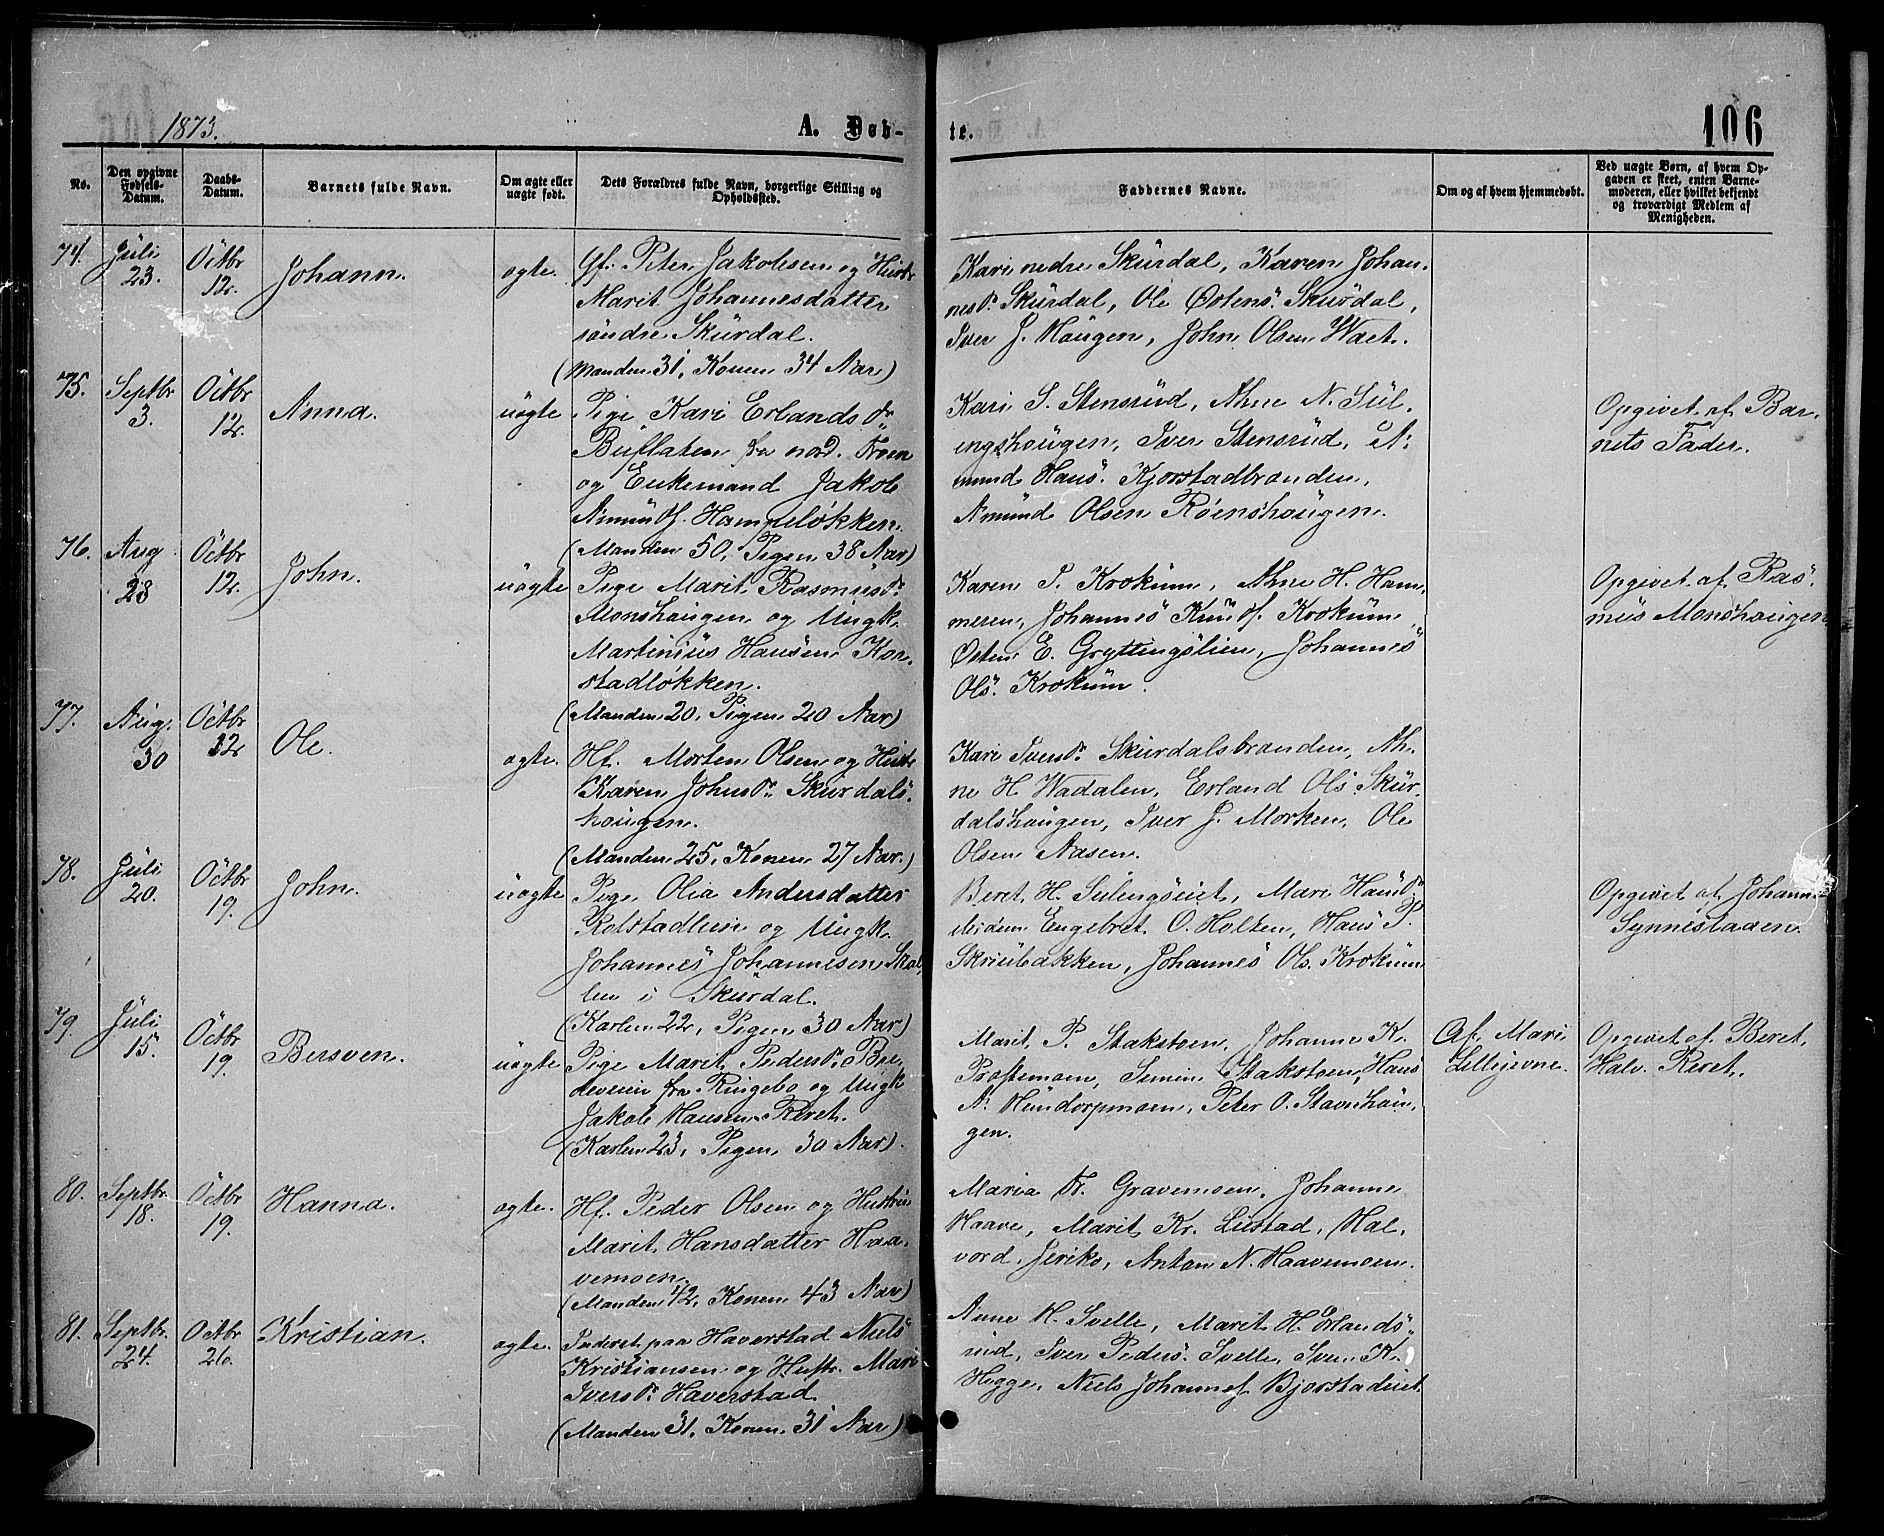 1873.
A. Døb-
te.
106
No.
Den opgivne
Fødsels-
Datum.
Daabs-
Datum.
Barnets fulde Navn.
Om ægte eller
uægte født.
Dets Forældres fulde Navn, borgerlige Stilling og
Opholdssted.
Faddernes Navne.
Om og af hvem hjemmedøbt.
Ved uægte Børn, af hvem Op-
gaven er skeet, enten Barne-
moderen, eller hvilket bekjendt
og troværdigt Medlem af
Menigheden.
74. Juli 23. Octbr 12. Johann. ægte.
Gf. Peter Jakobsen og Hustr
Marit Johannesdatter
søndre Skurdal.
(Manden 31, Konen 34 Aar)
Kari nedre Skurdal, Karen Johan-
nesdr Skurdal, Ole Østens. Skurdal,
Iver J. Haugen, John Olsen
75. Septbr 3. Octbr 12. Anna. uægte
Pige Kari Erlandsdr
Buflaten fra nord. Fron
og Enkemand Jakob
Amundss. Hampeløkken.
(Manden 50, Pigen 38 Aar)
Kari S. Stensrud, Anne N. Sul-
ingshaugen, Iver Stensrud, A-
mund Hans. Kjorstadbranden,
Amund Olsen Roenshaugen.
Opgivet af Bar-
nets Fader.
76. Aug 28 Octbr 12. John. uægte
Pige Marit Rasmusdr
Monshaugen og Ungk.
Martinius Hansen Kor-
stadløkken.
(Manden 20, Pigen 20 Aar)
Karen P. Krokum, Anne H. Ham-
meren, Johannes Knudss. Krokum,
Østen E. Gryttingslien, Johannes
Ols. Krokum.
Opgivet af Ras-
mus Monshaugen
77. Aug. 30 Octbr 12 Ole. ægte.
Hf. Morten Olsen og Hustr
Karen Johnsdr Skurdals-
haugen.
(Manden 25, Konen 27 Aar.)
Kari Iversdr Skurdalsbranden, An-
ne H. Wadalen, Erland Ols. Skur-
dalshaugen, Iver J. Morken, Ole
Olsen Aasen.
78. Juli 20. Octbr 19. John. uægte
Pige Olia Andersdatter
Kolstadlien og Ungk.
Johannes Johannesen Skal-
len i Skurdal.
(Karlen 22, Pigen 30 Aar)
Beret H. Sulengseiet, Mari Hansdr
ibidem Engebret O. Holten, Hans P.
Skriubakken, Johannes Ols. Krokum
Opgivet af Johann-
Synnestaden.
79. Juli 15. Octbr 19. Bersven. uægte
Pige Marit Pedersdr Bre-
deveien fra Ringebo og Ungk
Jakob Hansen Reret.
(Karlen 23, Pigen 30 Aar).
Marit P. Stakstoen, Johanne K.
Prostemoen, Simen Stakstoen, Hans
A. Hundorpmoen, Peter O. Stavshau-
gen.
Af Mari
Lillejevne.
Opgivet af Beret
Halv. Reret.
80. Septbr. 18. Octbr 19. Hanna. ægte.
Hf. Peder Olsen og Hustru
Marit Hansdatter Haa-
vemoen.
(Manden 42, Konen 43 Aar)
Maria Fr. Gravemoen, Johanne
Haave, Marit Kr. Liestad, Hal-
vord Jeriko, Anton N. Haavemoen.
81. Septbr. 24. Octbr 26. Kristian. ægte.
Inderst paa Haverstad Niels
Kristiansen og Hustr. Mari
Iversdr Haverstad
(Manden 31, Konen 31 Aar)
Anne H. Svelle, Marit H. Erlands-
rud, Iver Peders. Svelle, Sven K.
Hygge, Niels Johanness. Bjorstadeiet